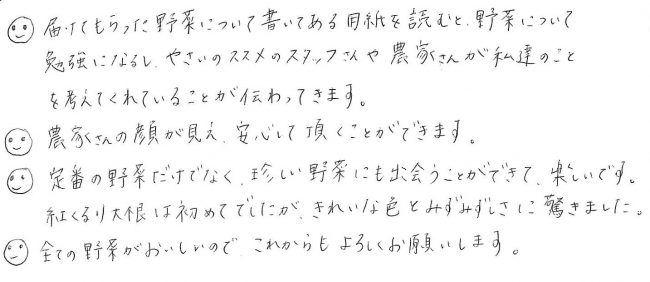 届けてもらった野菜について書いてある用紙を読むと、野菜について
勉強になるし、やさいのススメのスタッフさんや農家さんが私達のこと
を考えてくれていることが伝わってきます。
農家さんの顔が見え、安心して頂くことができます。
定番の野菜だけでなく、珍しい野菜にも出会うことができて、楽しいです。
紅くるり大根は初めてでしたが、きれいな色とみずみずしさに驚きました。
全ての野菜がおいしいので、これからもよろしくお願いします。